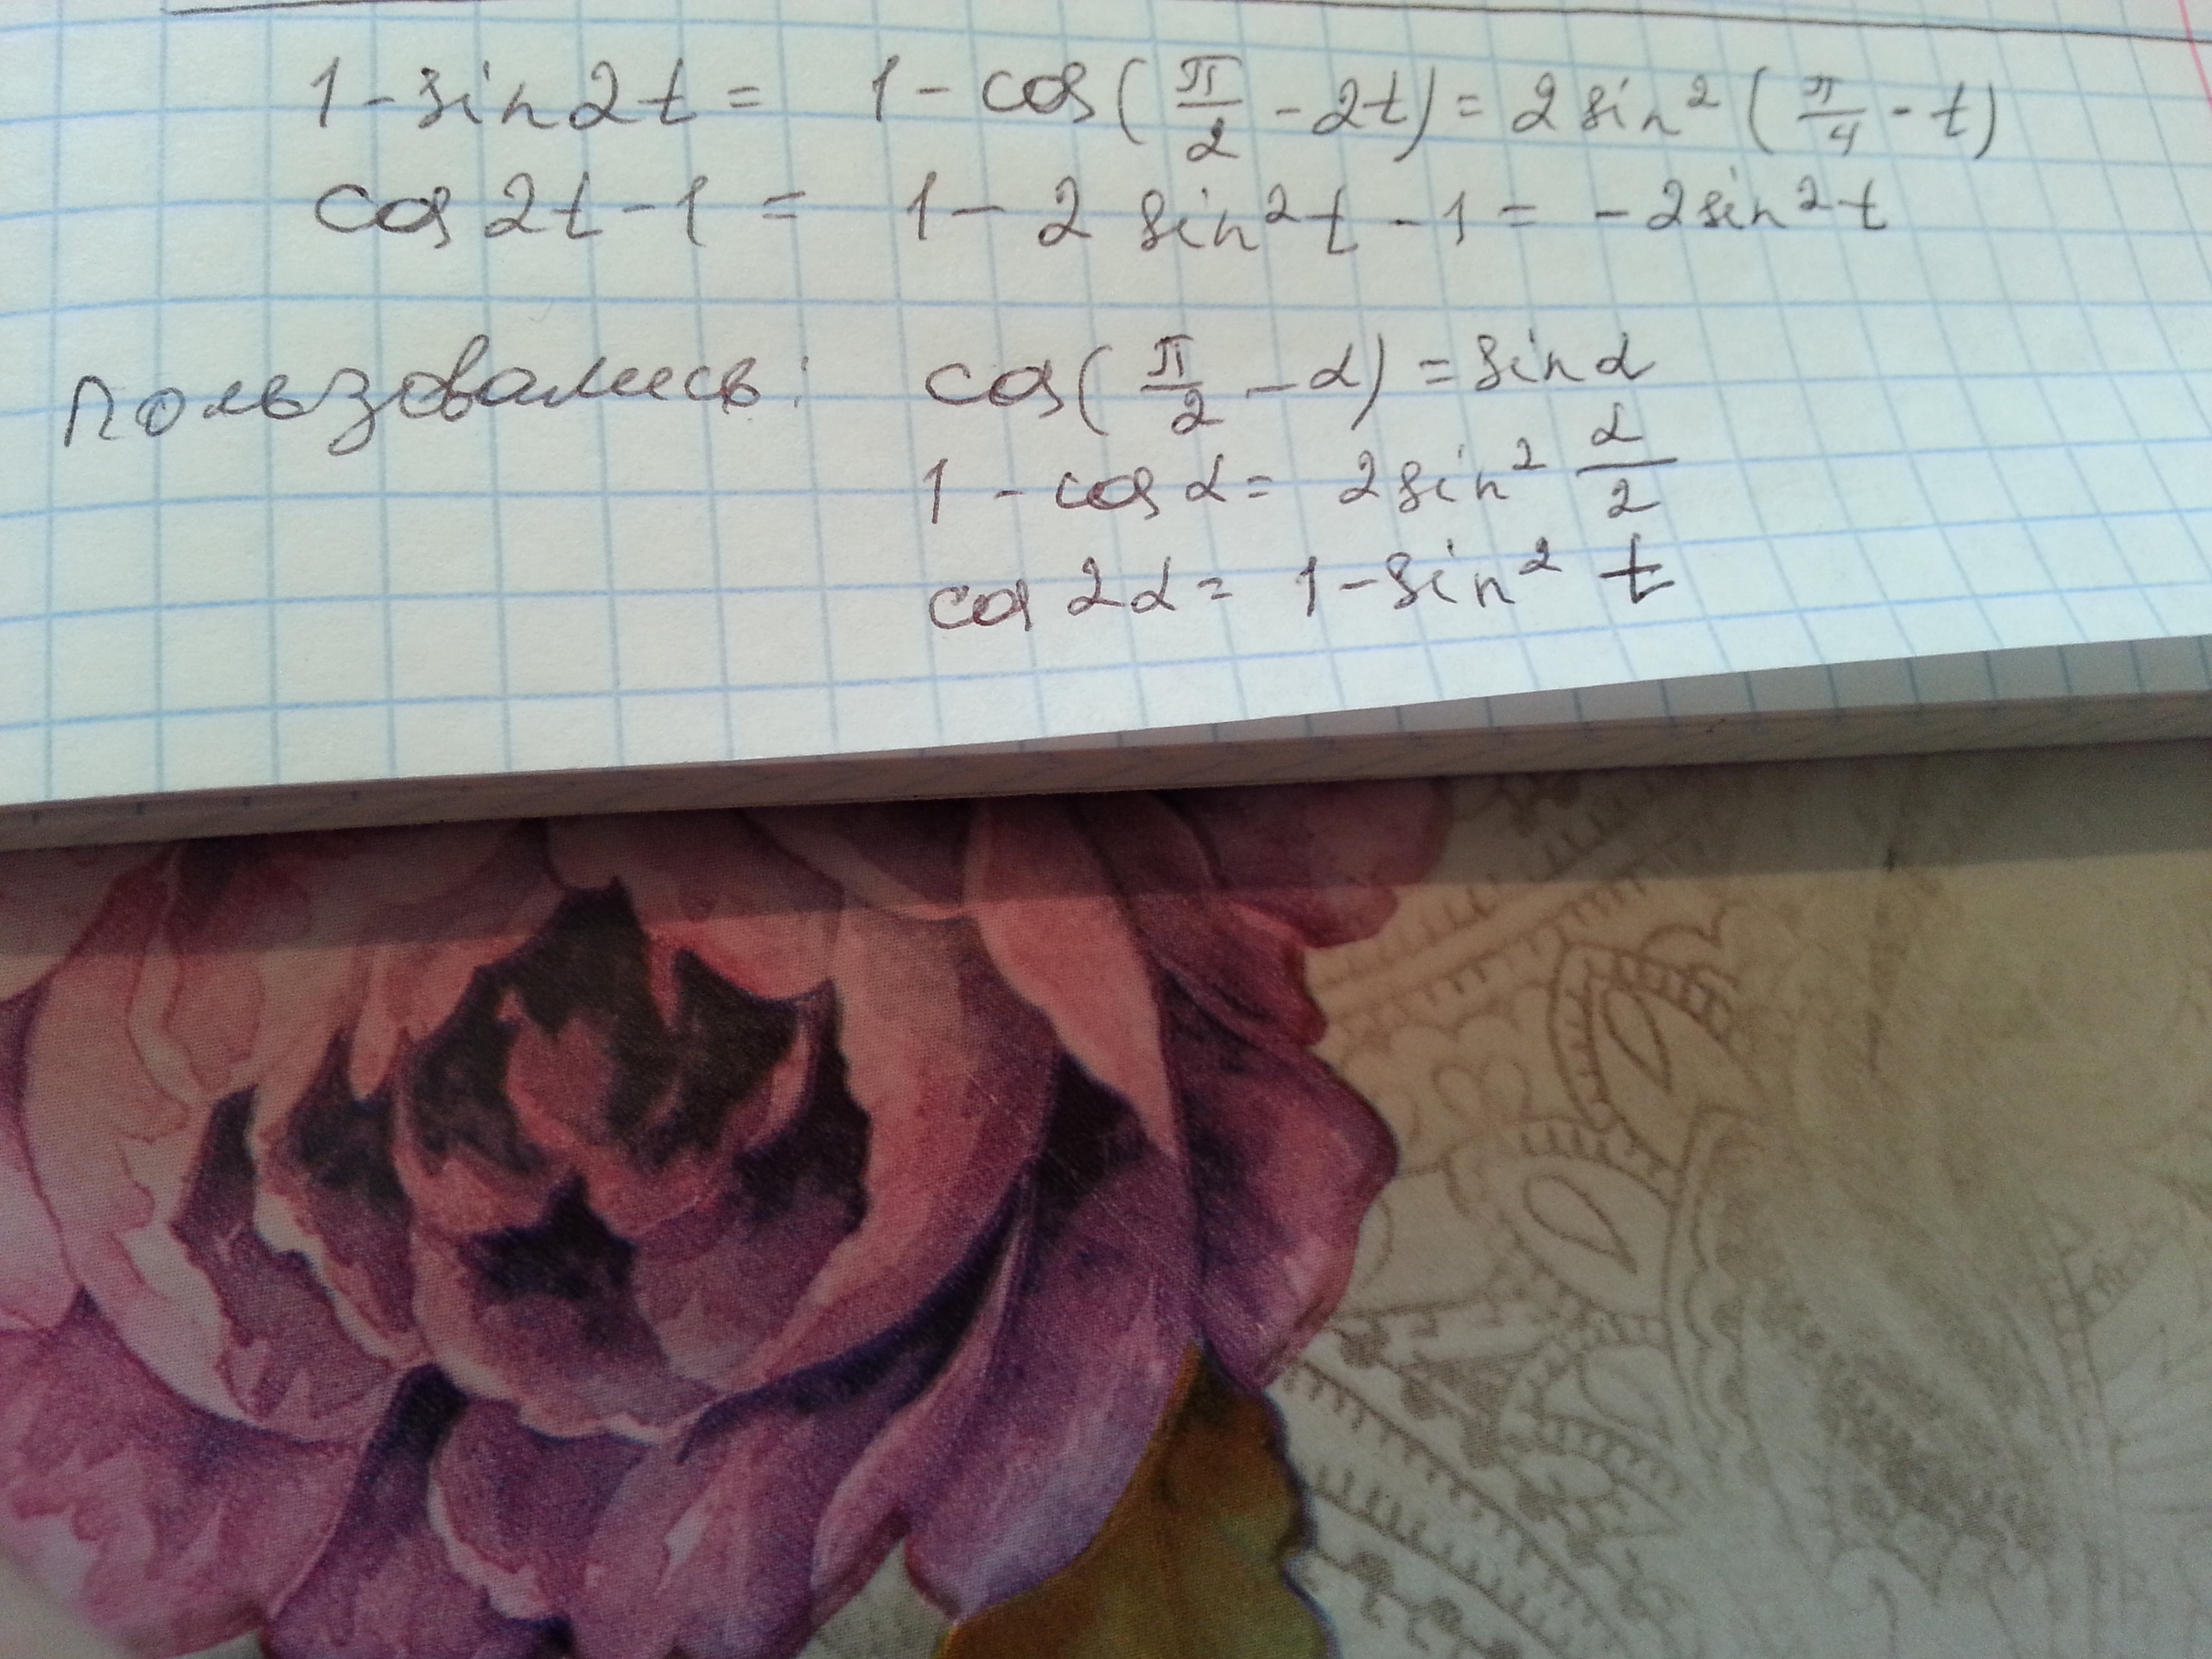 1 - sin 2t = 1 - cos(π/2 - 2t) = 2 sin² (π/4 - t)
cos 2t - 1 = 1 - 2 sin² t - 1 = - 2 sin² t
Пользовались: cos(π/2 - α) = sin α
1 - cos α = 2 sin² α/2
cos 2α = 1 - sin² t